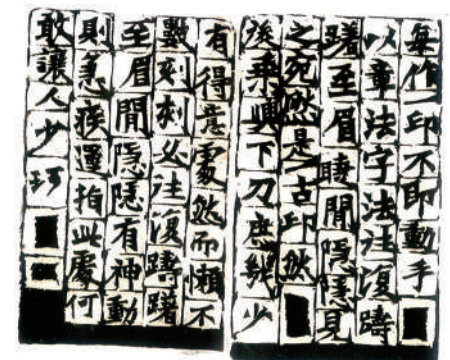 每作一印不即動手
以章法字法往復躊
躇至眉睫間隱隱見
之宛然是一古印然
後乘興下刀庶幾少
有得意處然而懶不
數刻刻必往復躊躇
至眉間隱隱有神動
則急疾運指此處何
敢讓人少珂